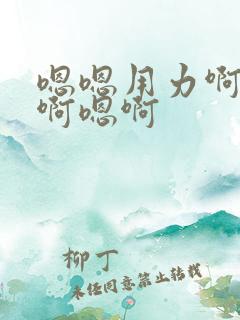 嗯嗯用力啊
啊嗯啊
柳丁
未经同意禁止转载